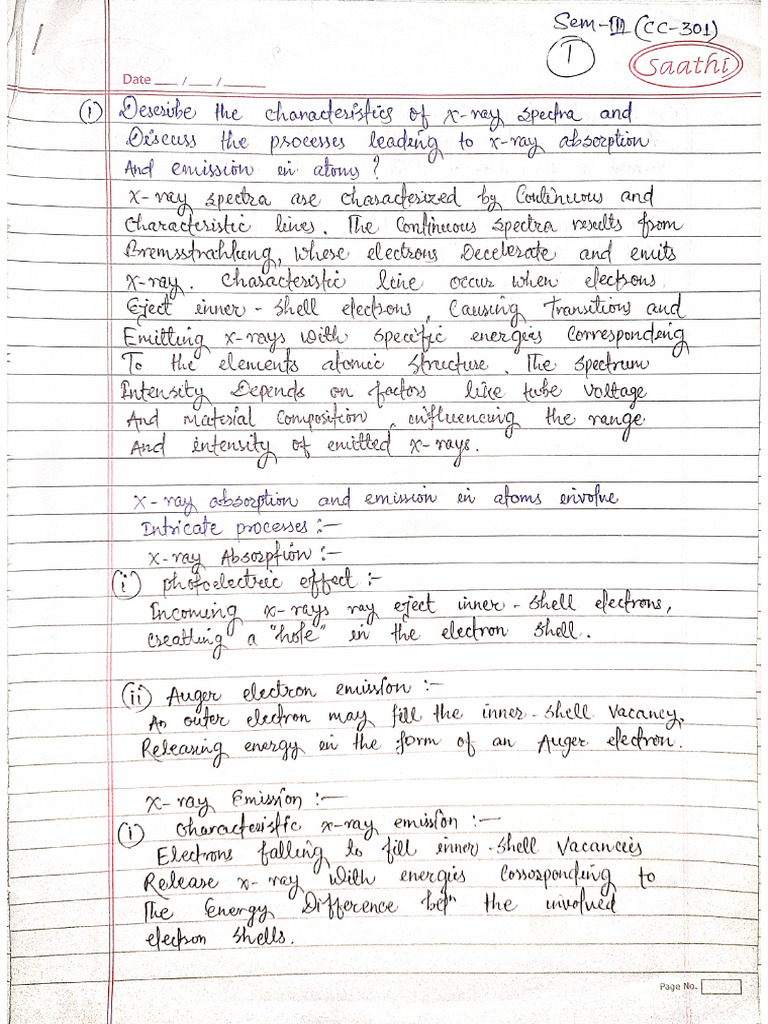 1
Sem-III (CC-301)
1
Saathi
Date ___ / ___ / _____
(1) Describe the characteristics of x-ray spectra and
Discuss the processes leading to x-ray absorption
And emission in atoms?
x-ray spectra are characterized by Continuous and
Characteristic lines. The Continuous spectra results from
Bremsstrahlung, where electrons Decelerate and emits
x-ray. Characteristic line occur when electrons
Eject inner-shell electrons, Causing Transitions and
Emitting x-rays with specific energies Corresponding
To the elements atomic structure. The spectrum
Intensity Depends on factors like tube Voltage
And Material Composition, influencing the range
And intensity of emitted x-rays.
x-ray absorption and emission in atoms involve
Intricate processes :-
x-ray Absorption :-
(i) photoelectric effect :-
Incoming x-rays ray eject inner-shell electrons,
creating a "hole" in the electron shell.
(ii) Auger electron emission :-
An outer electron may fill the inner-shell Vacancy,
Releasing energy in the form of an Auger electron.
x-ray Emission :-
(i) characteristic x-ray emission :-
Electrons falling to fill inner-shell Vacancies
Release x-ray with energies Corrosponding to
The Energy Difference betn the involved
electron shells.
Page No.